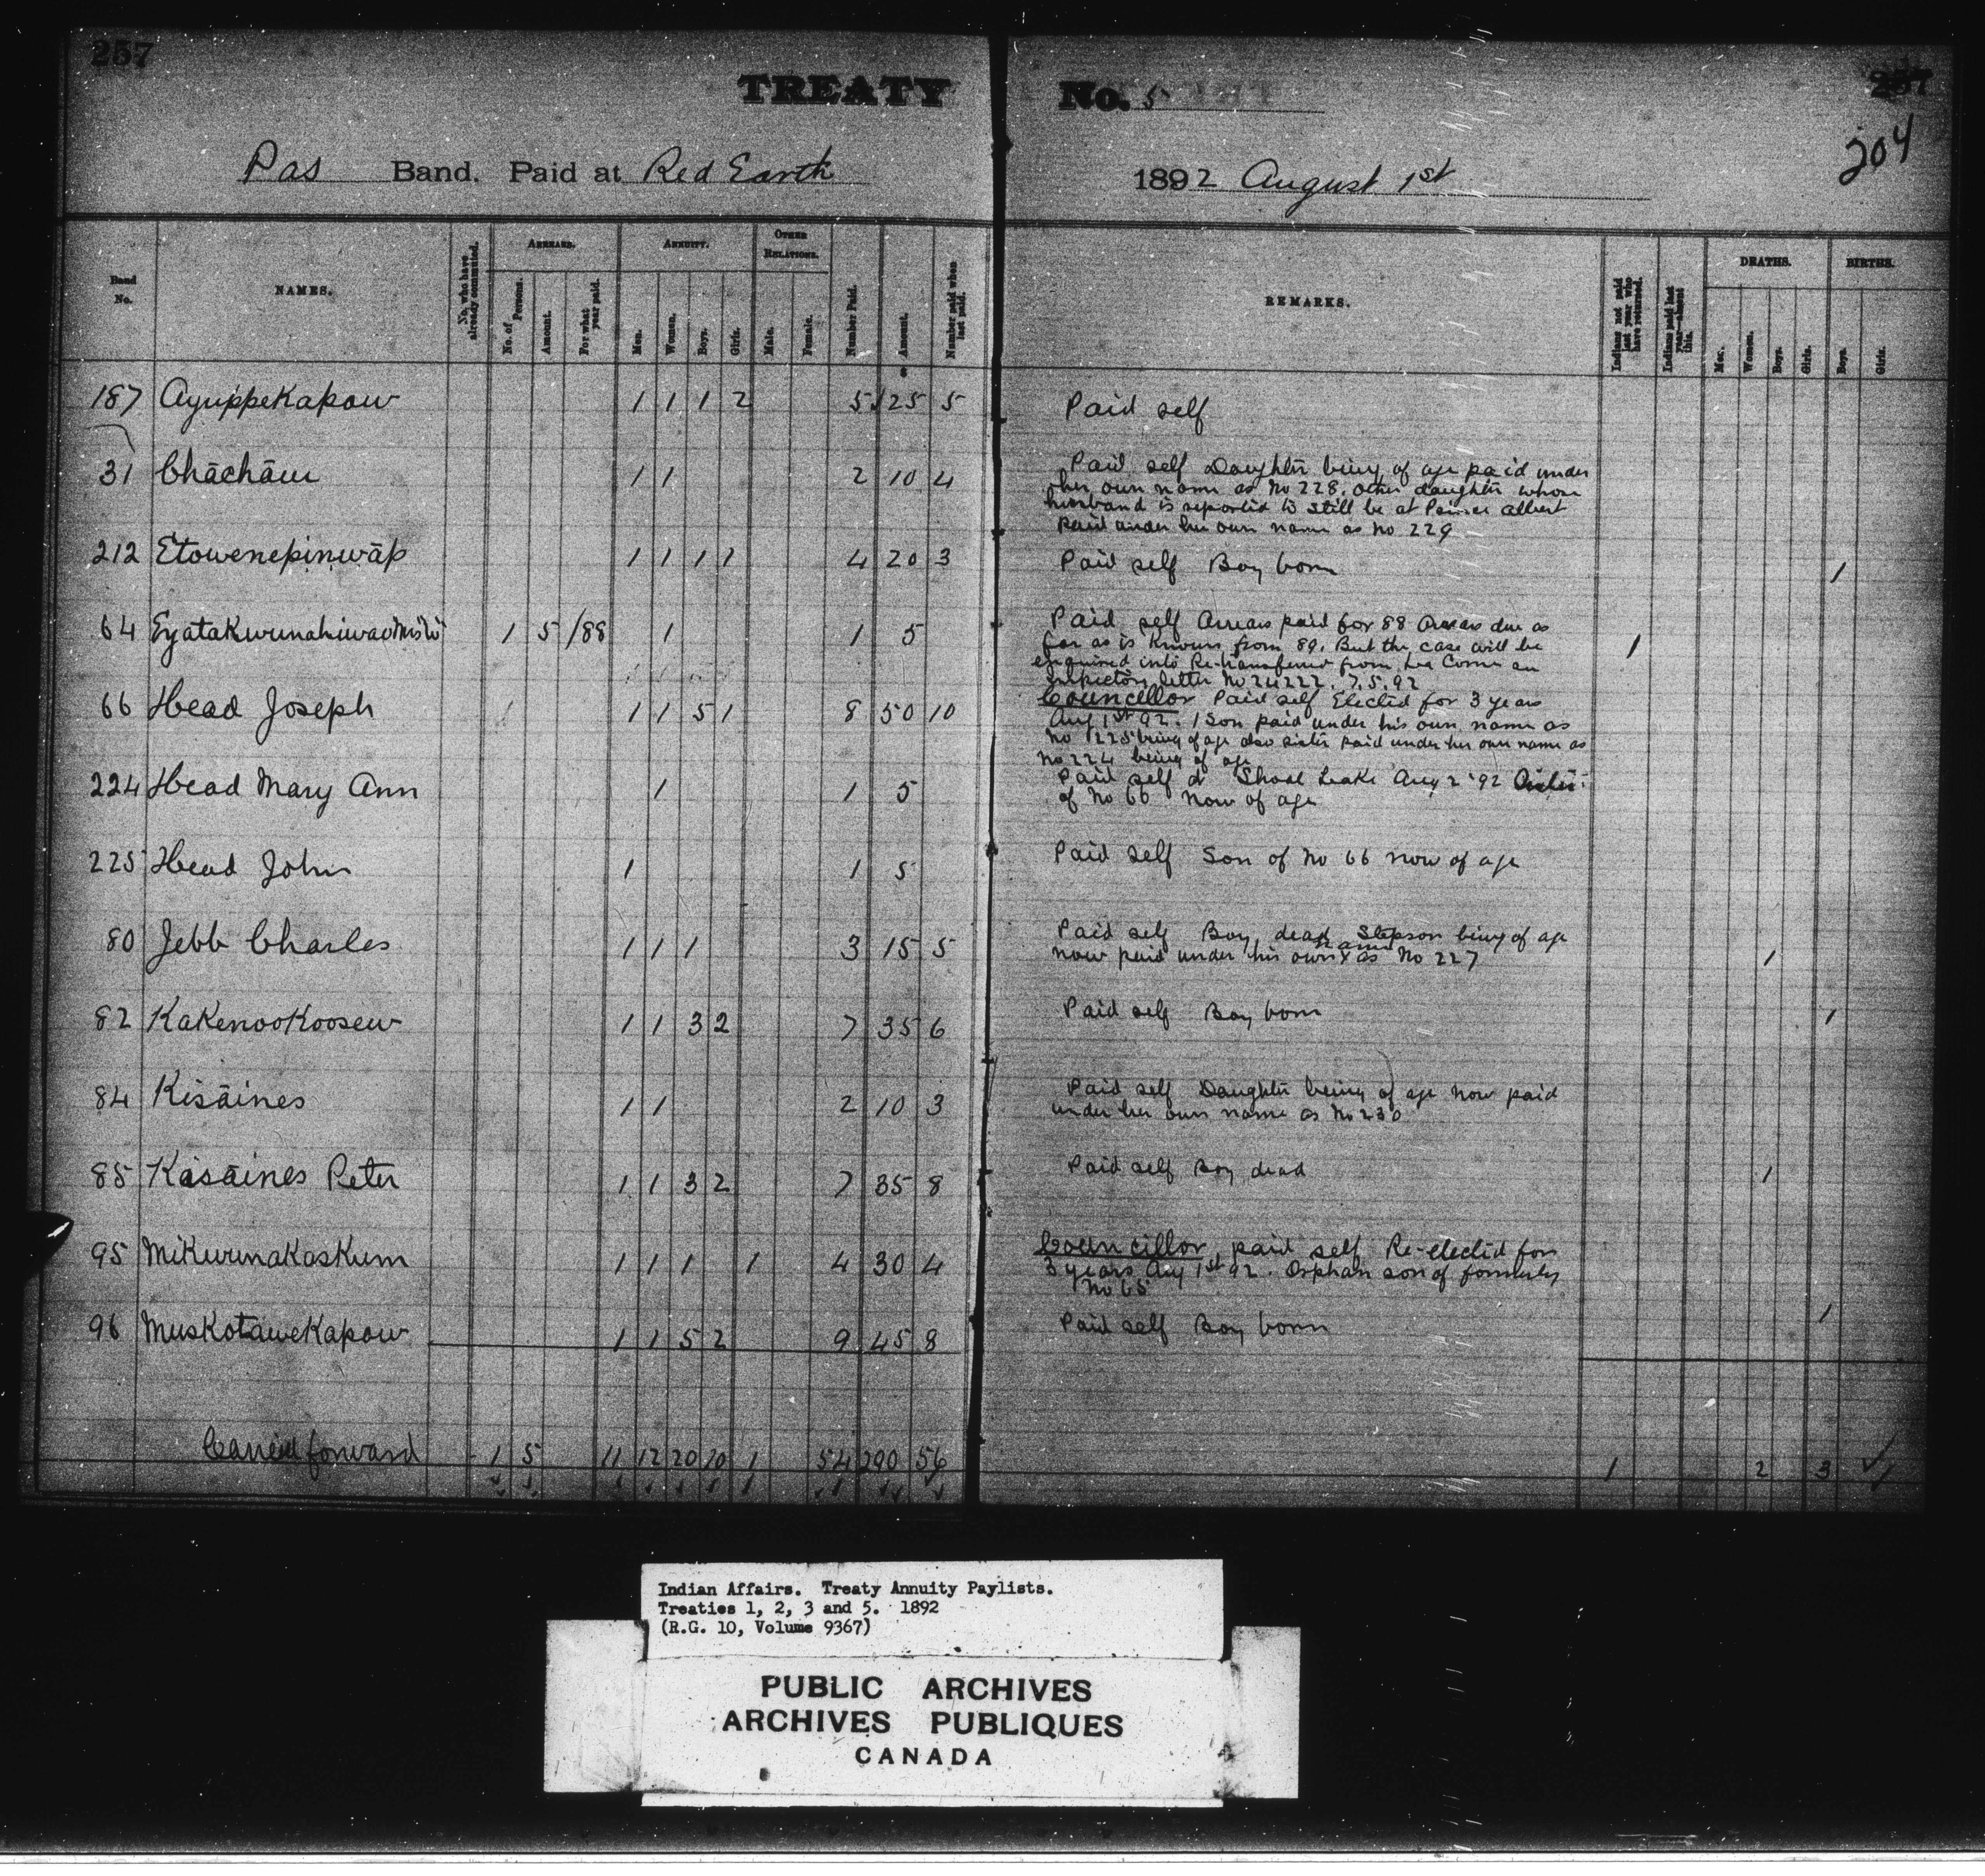 257
257
TREATY No. 5
204
Pas Band. Paid at Red Earth 1892 August 1st
Band No.
NAMES.
No. who have already commuted.
ARREARS.
No. of Persons.
Amount.
For what year paid.
ANNUITY.
Men.
Women.
Boys.
Girls.
OTHER RELATIONS.
Male.
Female.
Number Paid.
Amount.
Number paid when last paid.
REMARKS.
Indians not paid last year who have returned.
Indians paid last year—absent this.
DEATHS.
Men.
Women.
Boys.
Girls.
BIRTHS.
Boys.
Girls.
187 Ayuippekapow 1 1 1 2 5 25 5 Paid self
31 Chāchāw 1 1 2 10 4 Paid self Daughter being of age paid under
her own name as No 228. other daughter whose
husband is reported to still be at Prince Albert
Paid under her own name as no 229
212 Etowenepinwāp 1 1 1 1 4 20 3 Paid self Boy born 1
64 1 5 /88 1 1 5 Paid self Arrears paid for 88 Arrears due as 1
far as is known from 89. But the case will be
enquired into Re-transferred from
Inspectors letter No 7.5.92
66 Head Joseph 1 1 1 5 1 8 50 10 Councillor Paid self Elected for 3 years
Aug 1st 92. 1 Son paid under his own name as
No 225 being of age also sister paid under her own name as
No 224 being of age
224 Head Mary Ann 1 1 5 Paid self at Shoal Lake Aug 2 '92 Sister
of No 66 now of age
225 Head John 1 1 5 Paid self Son of No 66 now of age
80 Jebb Charles 1 1 1 3 15 5 Paid self Boy dead Stepson being of age 1
name
now paid under his own x as No 227
82 Kakenookoosew 1 1 3 2 7 35 6 Paid self Boy born 1
84 Kisāines 1 1 2 10 3 Paid self Daughter being of age now paid
under her own name as No 230
85 Kisāines Peter 1 1 3 2 7 35 8 Paid self Boy dead 1
95 Mikwunakaskum 1 1 1 1 4 30 4 Councillor, paid self Re-elected for
3 years Aug 1st 92. Orphan son of formerly
No 65
96 Muskotawekapow 1 1 5 2 9 45 8 Paid self Boy born 1
Carried forward 1 5 11 12 20 10 1 54 290 56 1 2 3
Indian Affairs. Treaty Annuity Paylists.
Treaties 1, 2, 3 and 5. 1892
(R.G. 10, Volume 9367)
PUBLIC ARCHIVES
ARCHIVES PUBLIQUES
CANADA